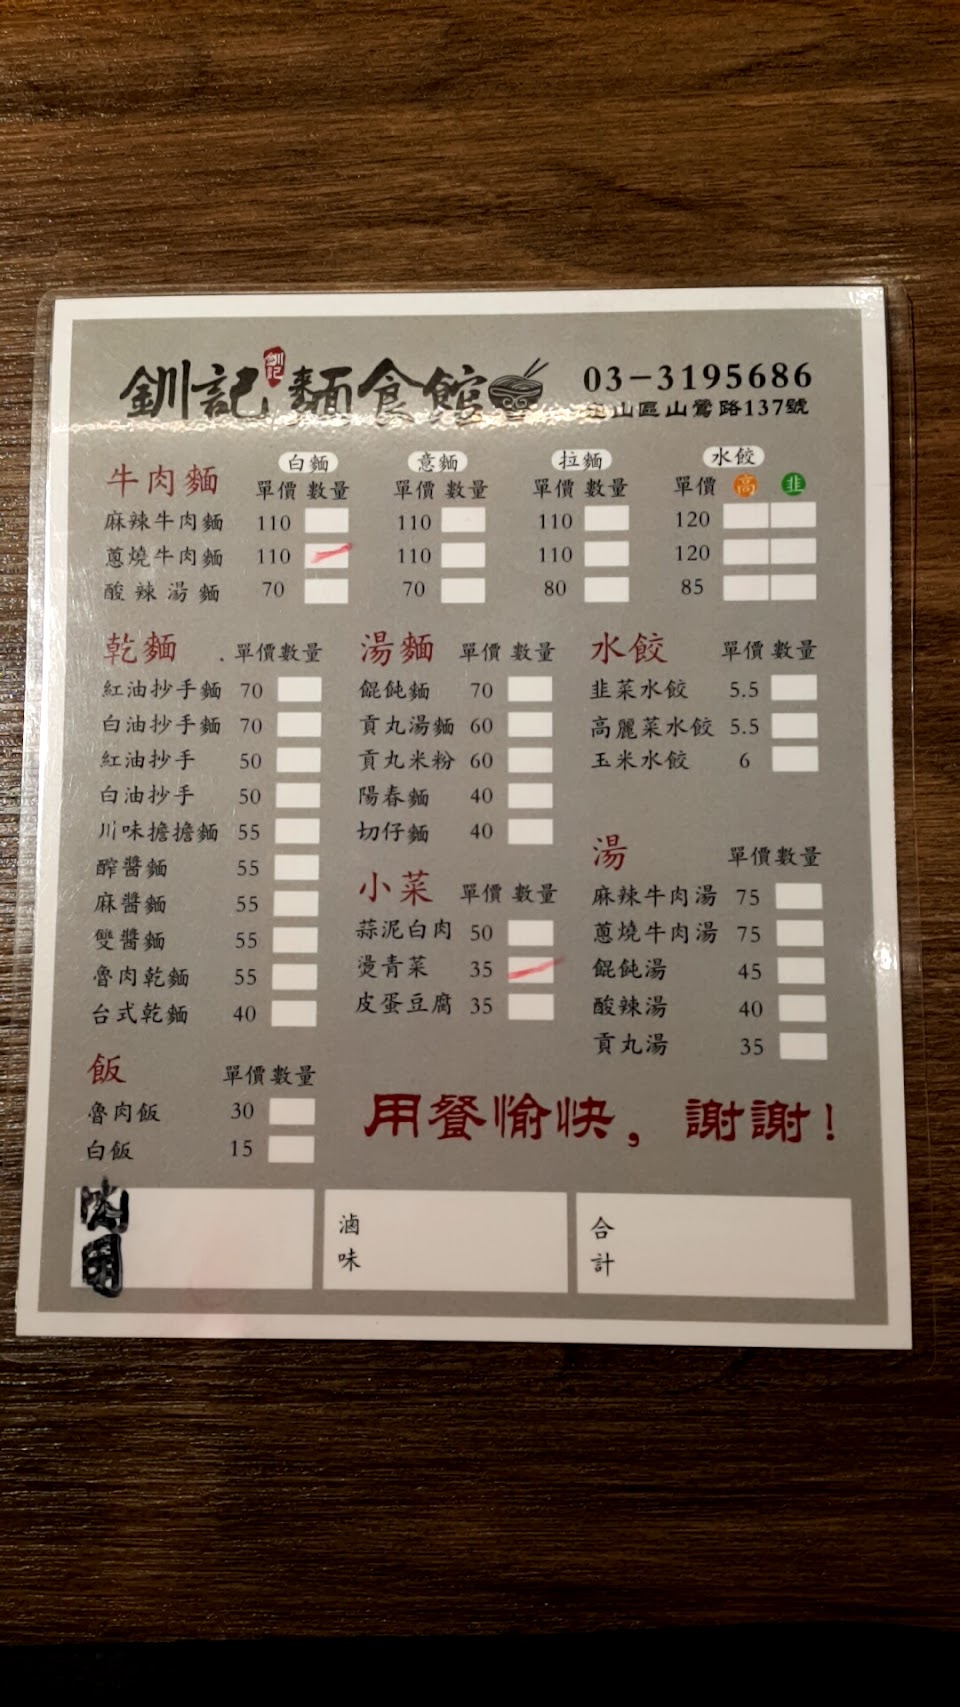 釧記麵食館
釧記
03-3195686
山區山鶯路137號
牛肉麵 白麵 意麵 拉麵 水餃
單價 數量 單價 數量 單價 數量 單價 高 韭
麻辣牛肉麵 110 110 110 120
蔥燒牛肉麵 110 110 110 120
酸辣湯麵 70 70 80 85
乾麵 單價 數量
紅油抄手麵 70
白油抄手麵 70
紅油抄手 50
白油抄手 50
川味擔擔麵 55
醡醬麵 55
麻醬麵 55
雙醬麵 55
魯肉乾麵 55
台式乾麵 40
飯 單價 數量
魯肉飯 30
白飯 15
湯麵 單價 數量
餛飩麵 70
貢丸湯麵 60
貢丸米粉 60
陽春麵 40
切仔麵 40
小菜 單價 數量
蒜泥白肉 50
燙青菜 35
皮蛋豆腐 35
水餃 單價 數量
韭菜水餃 5.5
高麗菜水餃 5.5
玉米水餃 6
湯 單價 數量
麻辣牛肉湯 75
蔥燒牛肉湯 75
餛飩湯 45
酸辣湯 40
貢丸湯 35
用餐愉快，謝謝！
內用
滷味
合計